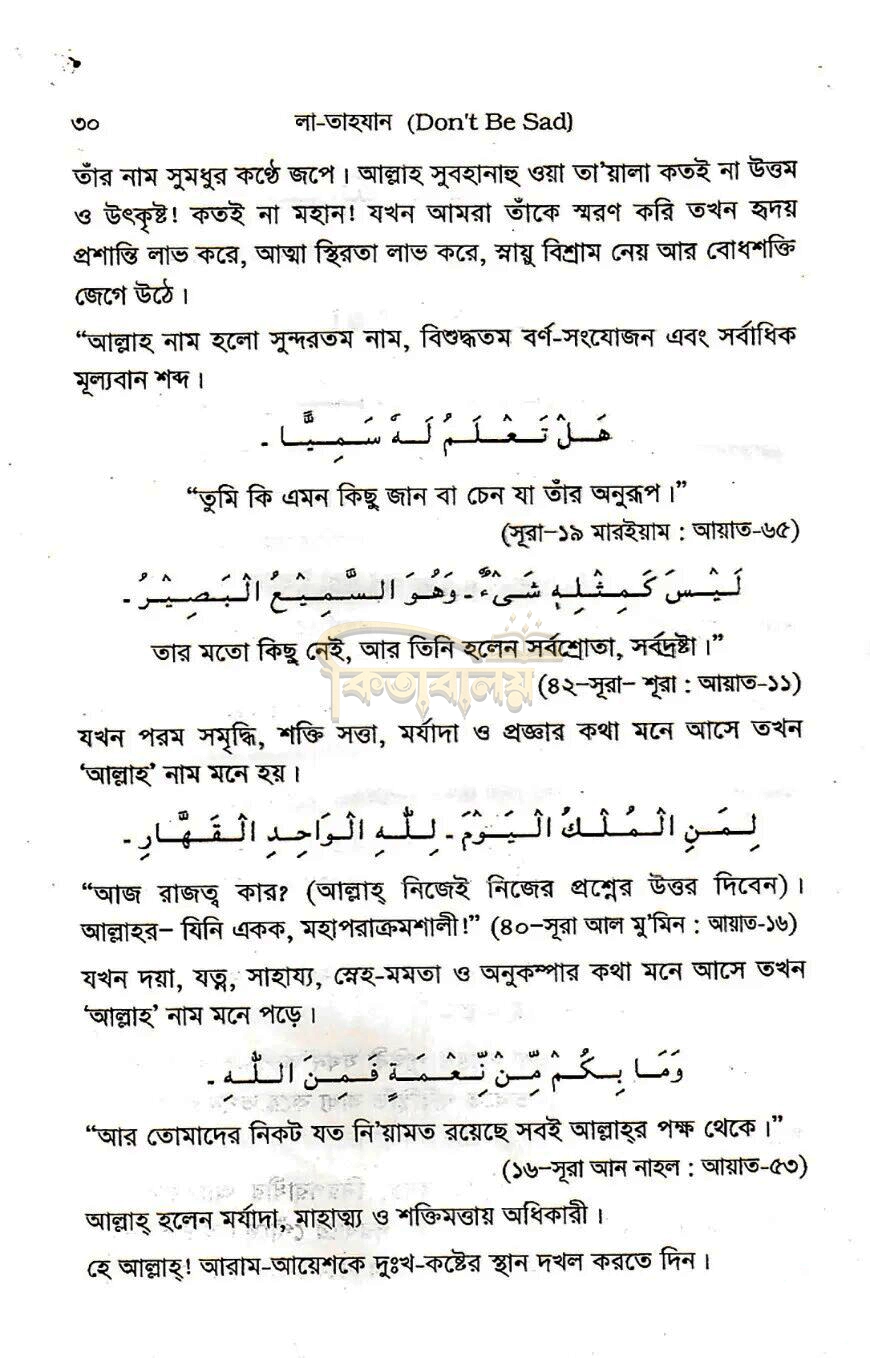 ৩০ লা-তাহযান (Don't Be Sad)
তাঁর নাম সুমধুর কণ্ঠে জপে। আল্লাহ সুবহানাহু ওয়া তা'য়ালা কতই না উত্তম
ও উৎকৃষ্ট! কতই না মহান! যখন আমরা তাঁকে স্মরণ করি তখন হৃদয়
প্রশান্তি লাভ করে, আত্মা স্থিরতা লাভ করে, স্নায়ু বিশ্রাম নেয় আর বোধশক্তি
জেগে উঠে।
“আল্লাহ নাম হলো সুন্দরতম নাম, বিশুদ্ধতম বর্ণ-সংযোজন এবং সর্বাধিক
মূল্যবান শব্দ।
هَلْ تَعْلَمُ لَهُ سَمِيًّا -
“তুমি কি এমন কিছু জান বা চেন যা তাঁর অনুরূপ।”
(সূরা-১৯ মারইয়াম : আয়াত-৬৫)
لَيْسَ كَمِثْلِهِ شَىْءٌ - وَهُوَ السَّمِيْعُ الْبَصِيْرُ -
তার মতো কিছু নেই, আর তিনি হলেন সর্বশ্রোতা, সর্বদ্রষ্টা।”
কিতাবালয়
(৪২-সূরা- শূরা : আয়াত-১১)
যখন পরম সমৃদ্ধি, শক্তি সত্তা, মর্যাদা ও প্রজ্ঞার কথা মনে আসে তখন
‘আল্লাহ’ নাম মনে হয়।
لِمَنِ الْمُلْكُ الْيَوْمَ - لِلّٰهِ الْوَاحِدِ الْقَهَّارِ -
“আজ রাজত্ব কার? (আল্লাহ্ নিজেই নিজের প্রশ্নের উত্তর দিবেন)।
আল্লাহর- যিনি একক, মহাপরাক্রমশালী!” (৪০-সূরা আল মু'মিন : আয়াত-১৬)
যখন দয়া, যত্ন, সাহায্য, স্নেহ-মমতা ও অনুকম্পার কথা মনে আসে তখন
‘আল্লাহ’ নাম মনে পড়ে।
وَمَا بِكُمْ مِّنْ نِّعْمَةٍ فَمِنَ اللّٰهِ -
“আর তোমাদের নিকট যত নি'য়ামত রয়েছে সবই আল্লাহ্‌র পক্ষ থেকে।”
(১৬-সূরা আন নাহল : আয়াত-৫৩)
আল্লাহ্ হলেন মর্যাদা, মাহাত্ম্য ও শক্তিমত্তায় অধিকারী।
হে আল্লাহ্! আরাম-আয়েশকে দুঃখ-কষ্টের স্থান দখল করতে দিন।